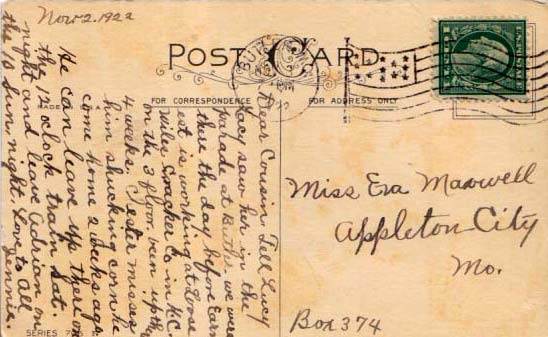 Nov. 2. 1922
POST CARD
FOR CORRESPONDENCE
FOR ADDRESS ONLY
MADE
Dear Cousin, Tell Lucy
Lacy saw her in the
parade at Butler we were
there the day before Earn
est is working at Loose
Wiles Cracker Co in K.C.
on the 3 floor. been up there
4 weeks. Lester misses
him shucking corn he
come home 2 weeks ago.
He can leave up there on
the 12 oclock train Sat.
night and leave Adrian on
the 10 Sun. night. Love to All
Jennie.
Miss Eva Maxwell
Appleton City
Mo.
Box 374
SERIES